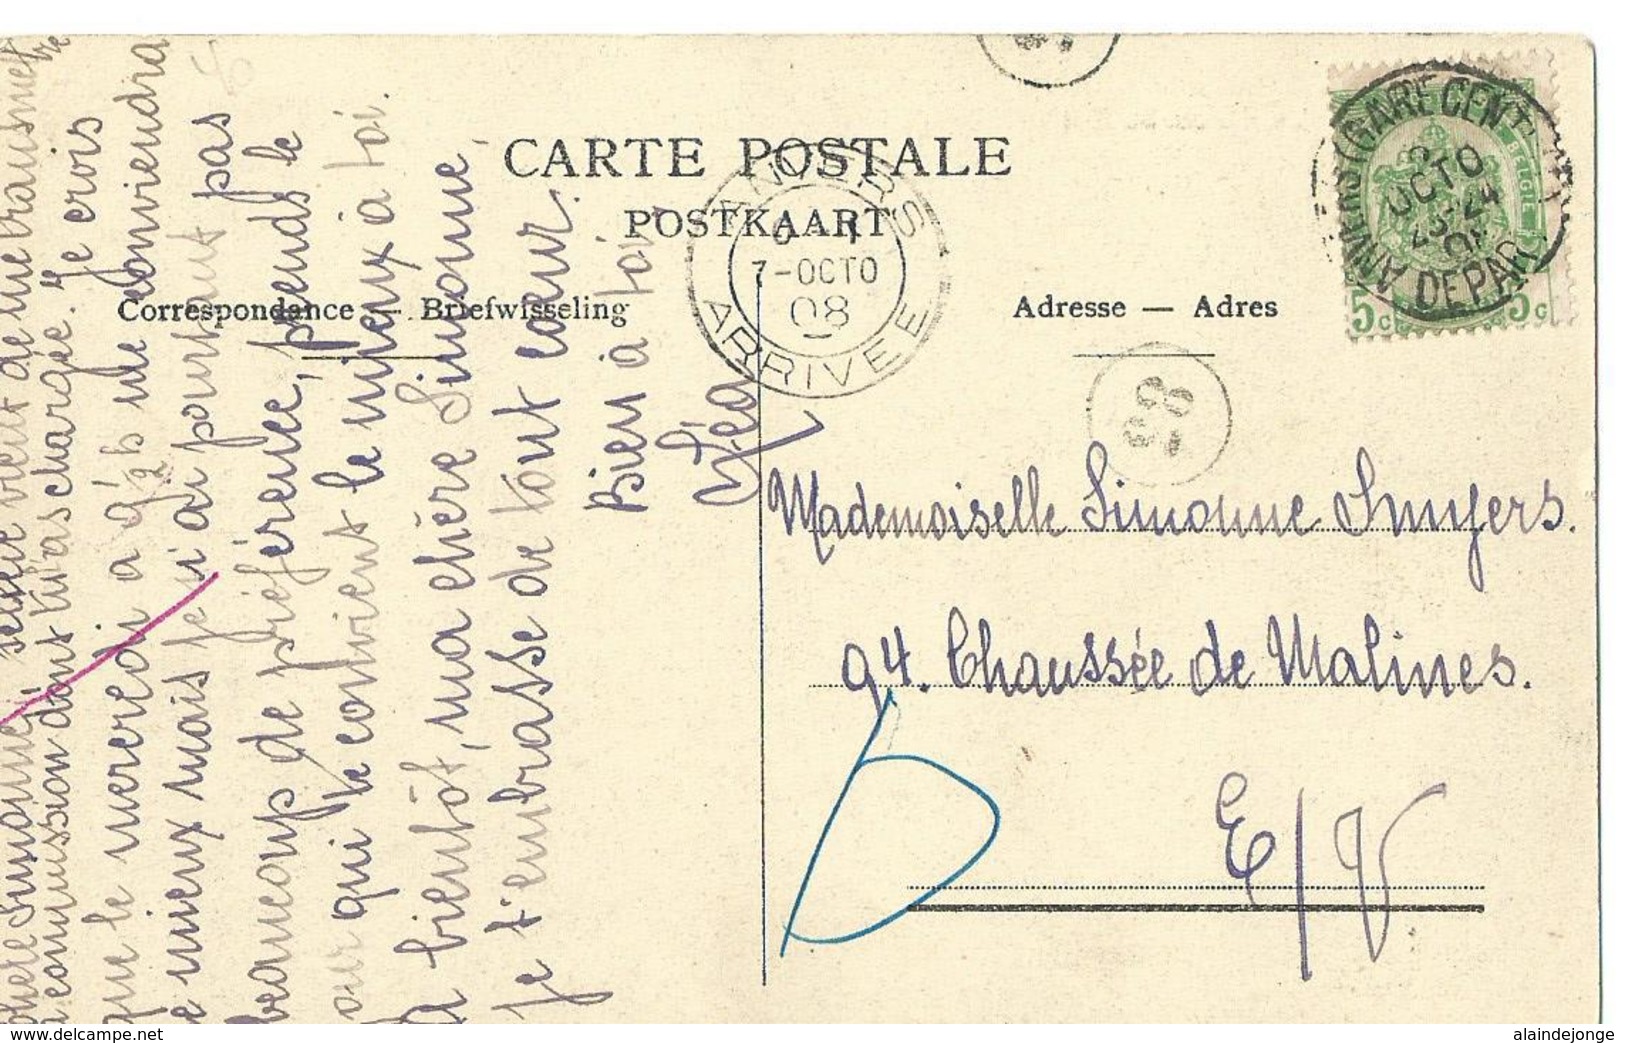 CARTE POSTALE
POSTKAART
Correspondance — Briefwisseling
Adresse — Adres
ANVERS (GARE CENT
OCTO
23-24
DEPART
BELGIE
5c 5c
ANVERS
7-OCTO
08
ARRIVÉE
28
chère Simonne, Hélène vient de me transmettre
la commission dont tu l'as chargée. Je crois
que le mercredi à 4 1/2 h me conviendra
le mieux mais je n'ai pourtant pas
beaucoup de préférence, prends le
jour qui te convient le mieux à toi.
A bientôt, ma chère Simonne,
je t'embrasse de tout cœur.
Bien à toi
Léa
Mademoiselle Simonne Smyers.
94. Chaussée de Malines.
E/V
www.delcampe.net
alaindejonge